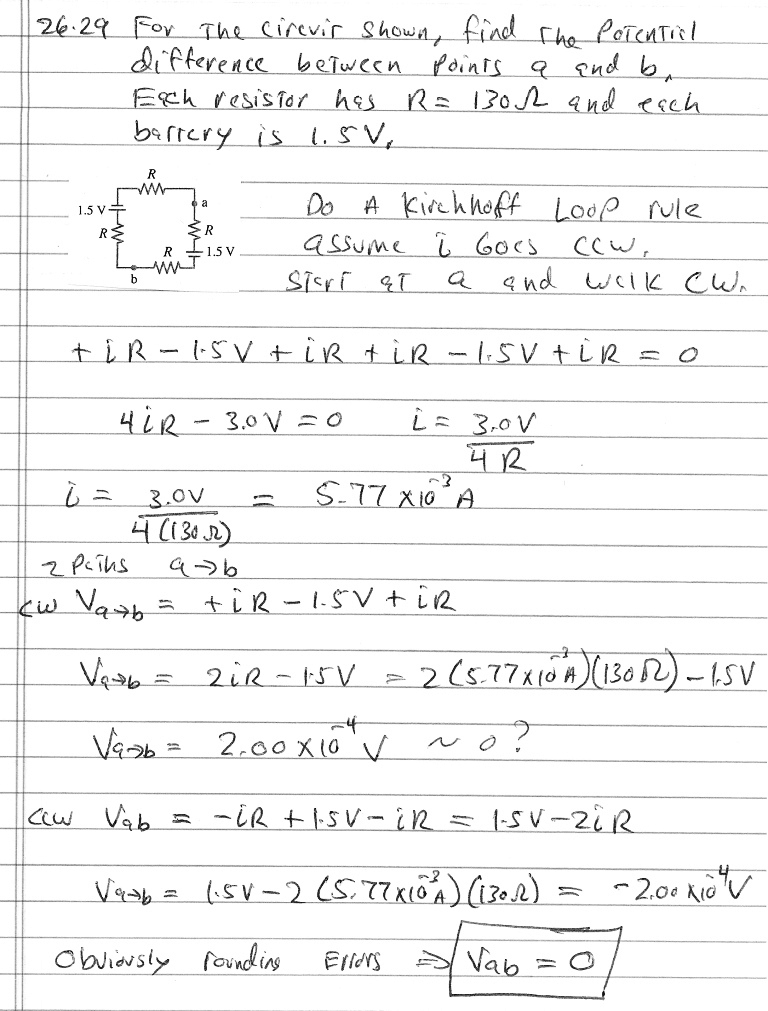 26.29 For The circuit shown, find The Potential
difference between points a and b.
Each resistor has R = 130Ω and each
battery is 1.5V.
R
1.5 V
a
R
R
R
1.5 V
b
Do A Kirchhoff Loop rule
assume i Goes CCW.
Start at a and walk CW.
+iR - 1.5V + iR + iR - 1.5V + iR = 0
4iR - 3.0V = 0 i = 3.0V / 4R
i = 3.0V / 4(130Ω) = 5.77 x10⁻³ A
2 Paths a→b
CW Va→b = +iR - 1.5V + iR
Va→b = 2iR - 1.5V = 2(5.77x10⁻³A)(130Ω) - 1.5V
Va→b = 2.00x10⁻⁴ V ~ 0?
CCW Vab = -iR + 1.5V - iR = 1.5V - 2iR
Va→b = 1.5V - 2(5.77x10⁻³A)(130Ω) = -2.00x10⁻⁴V
Obviously rounding Errors ⇒ Vab = 0